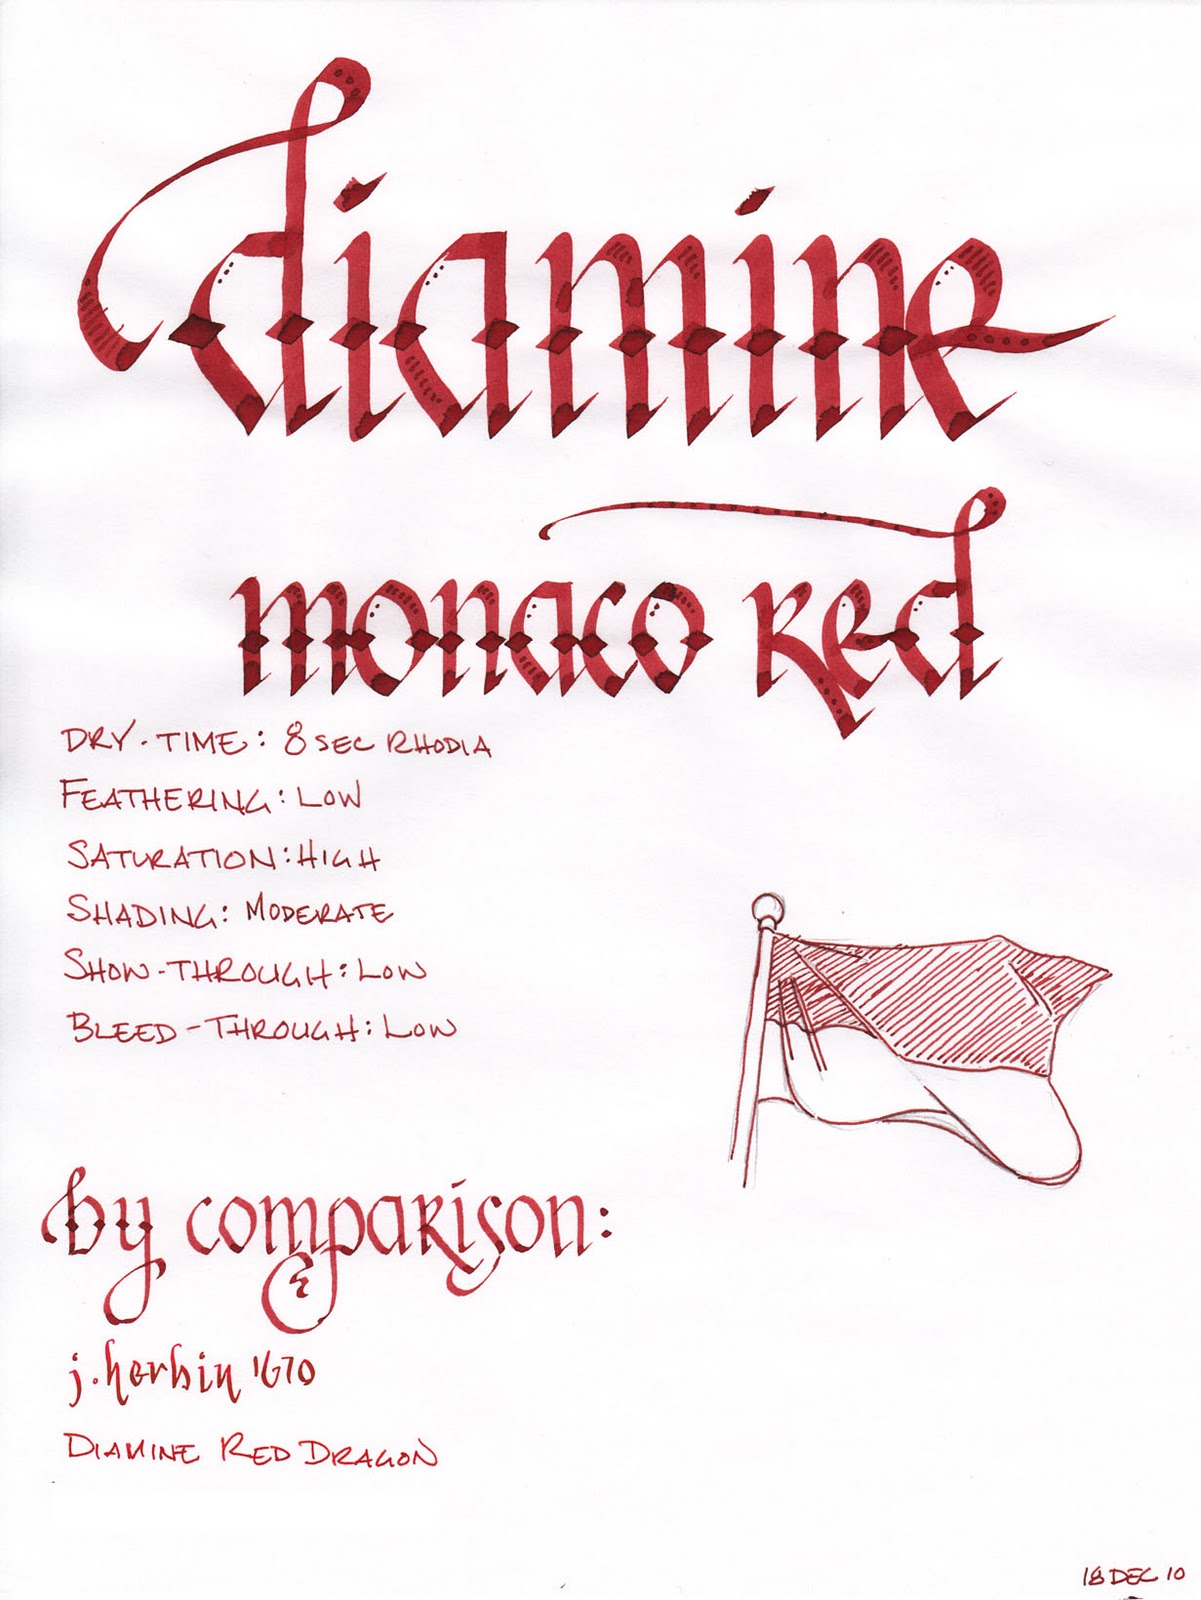 diamine
monaco Red
DRY-TIME: 8 SEC RHODIA
FEATHERING: LOW
SATURATION: HIGH
SHADING: MODERATE
SHOW-THROUGH: LOW
BLEED-THROUGH: LOW
by comparison:
j. herbin 1670
DIAMINE RED DRAGON
18 DEC 10